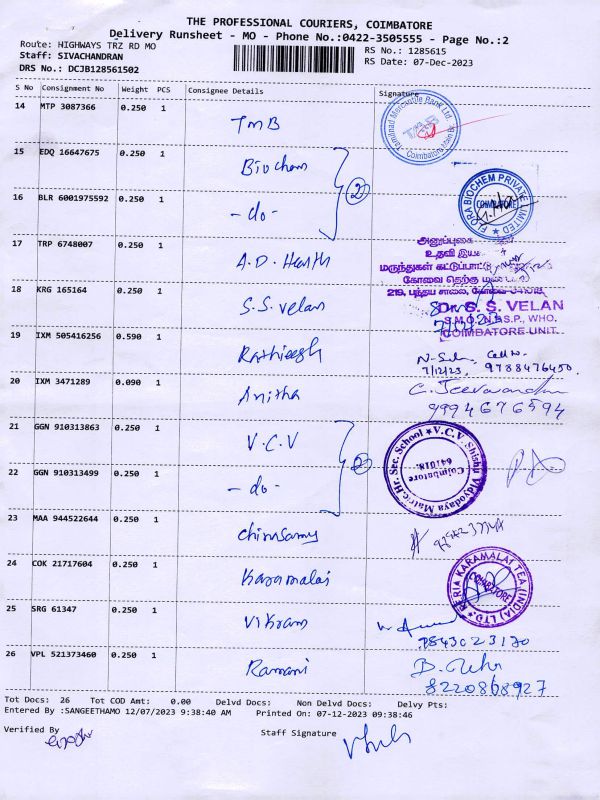 THE PROFESSIONAL COURIERS, COIMBATORE
Delivery Runsheet - MO - Phone No.:0422-3505555 - Page No.:2
Route: HIGHWAYS TRZ RD MO
RS No.: 1285615
Staff: SIVACHANDRAN
RS Date: 07-Dec-2023
DRS No.: DCJB128561502
S No Consignment No Weight PCS Consignee Details Signature
14 MTP 3087366 0.250 1 TMB
Tamilnad Mercantile Bank Ltd
TMB
15 EDQ 16647675 0.250 1 Biochem
2
16 BLR 6001975592 0.250 1 -do-
FLORA BIOCHEM PRIVATE LIMITED
COIMBATORE
17 TRP 6748007 0.250 1 A.D. Health
மருந்துகள் கட்டுப்பாட்டு
கோவை தெற்கு
18 KRG 165164 0.250 1 S.S. Velan
Dr. S. S. VELAN
S.M.O, N.P.S.P., WHO.
COIMBATORE UNIT.
19 IXM 505416256 0.590 1 Ratheesh
7/12/23, 9788476450.
20 IXM 3471289 0.090 1 Anitha
C. Jeevanandam
9994676594
21 GGN 910313863 0.250 1 V.C.V
2
22 GGN 910313499 0.250 1 -do-
V.C.V. Shishu Vidyodaya Matric.Hr. Sec. School
Coimbatore
641018.
23 MAA 944522644 0.250 1 Chinnsamy
24 COK 21717604 0.250 1 Karamalai
PERIA KARAMALAI TEA (INDIA) LTD.
COIMBATORE
25 SRG 61347 0.250 1 Vikram
7543023170
26 VPL 521373460 0.250 1 Ramani
8220868927
Tot Docs: 26 Tot COD Amt: 0.00 Delvd Docs: Non Delvd Docs: Delvy Pts:
Entered By :SANGEETHAMO 12/07/2023 9:38:40 AM Printed On: 07-12-2023 09:38:46
Verified By
Staff Signature